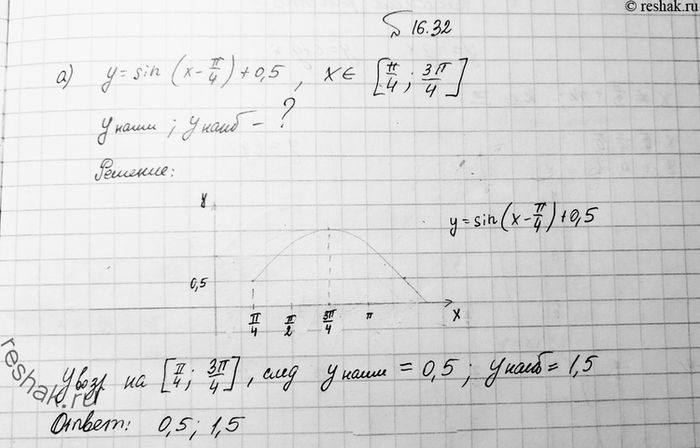 © reshak.ru
§ 16.32
а) y = sin (x - π/4) + 0,5 , x ∈ [π/4 ; 3π/4]
y наим ; y наиб - ?
Решение:
y
y = sin(x - π/4) + 0,5
0,5
π/4 π/2 3π/4 π x
y возр на [π/4 ; 3π/4] , след y наим = 0,5 ; y наиб = 1,5
Ответ: 0,5 ; 1,5
reshak.ru